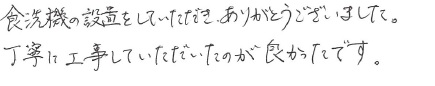 食洗機の設置をしていただき、ありがとうございました。
丁寧に工事していただいたのが良かったです。